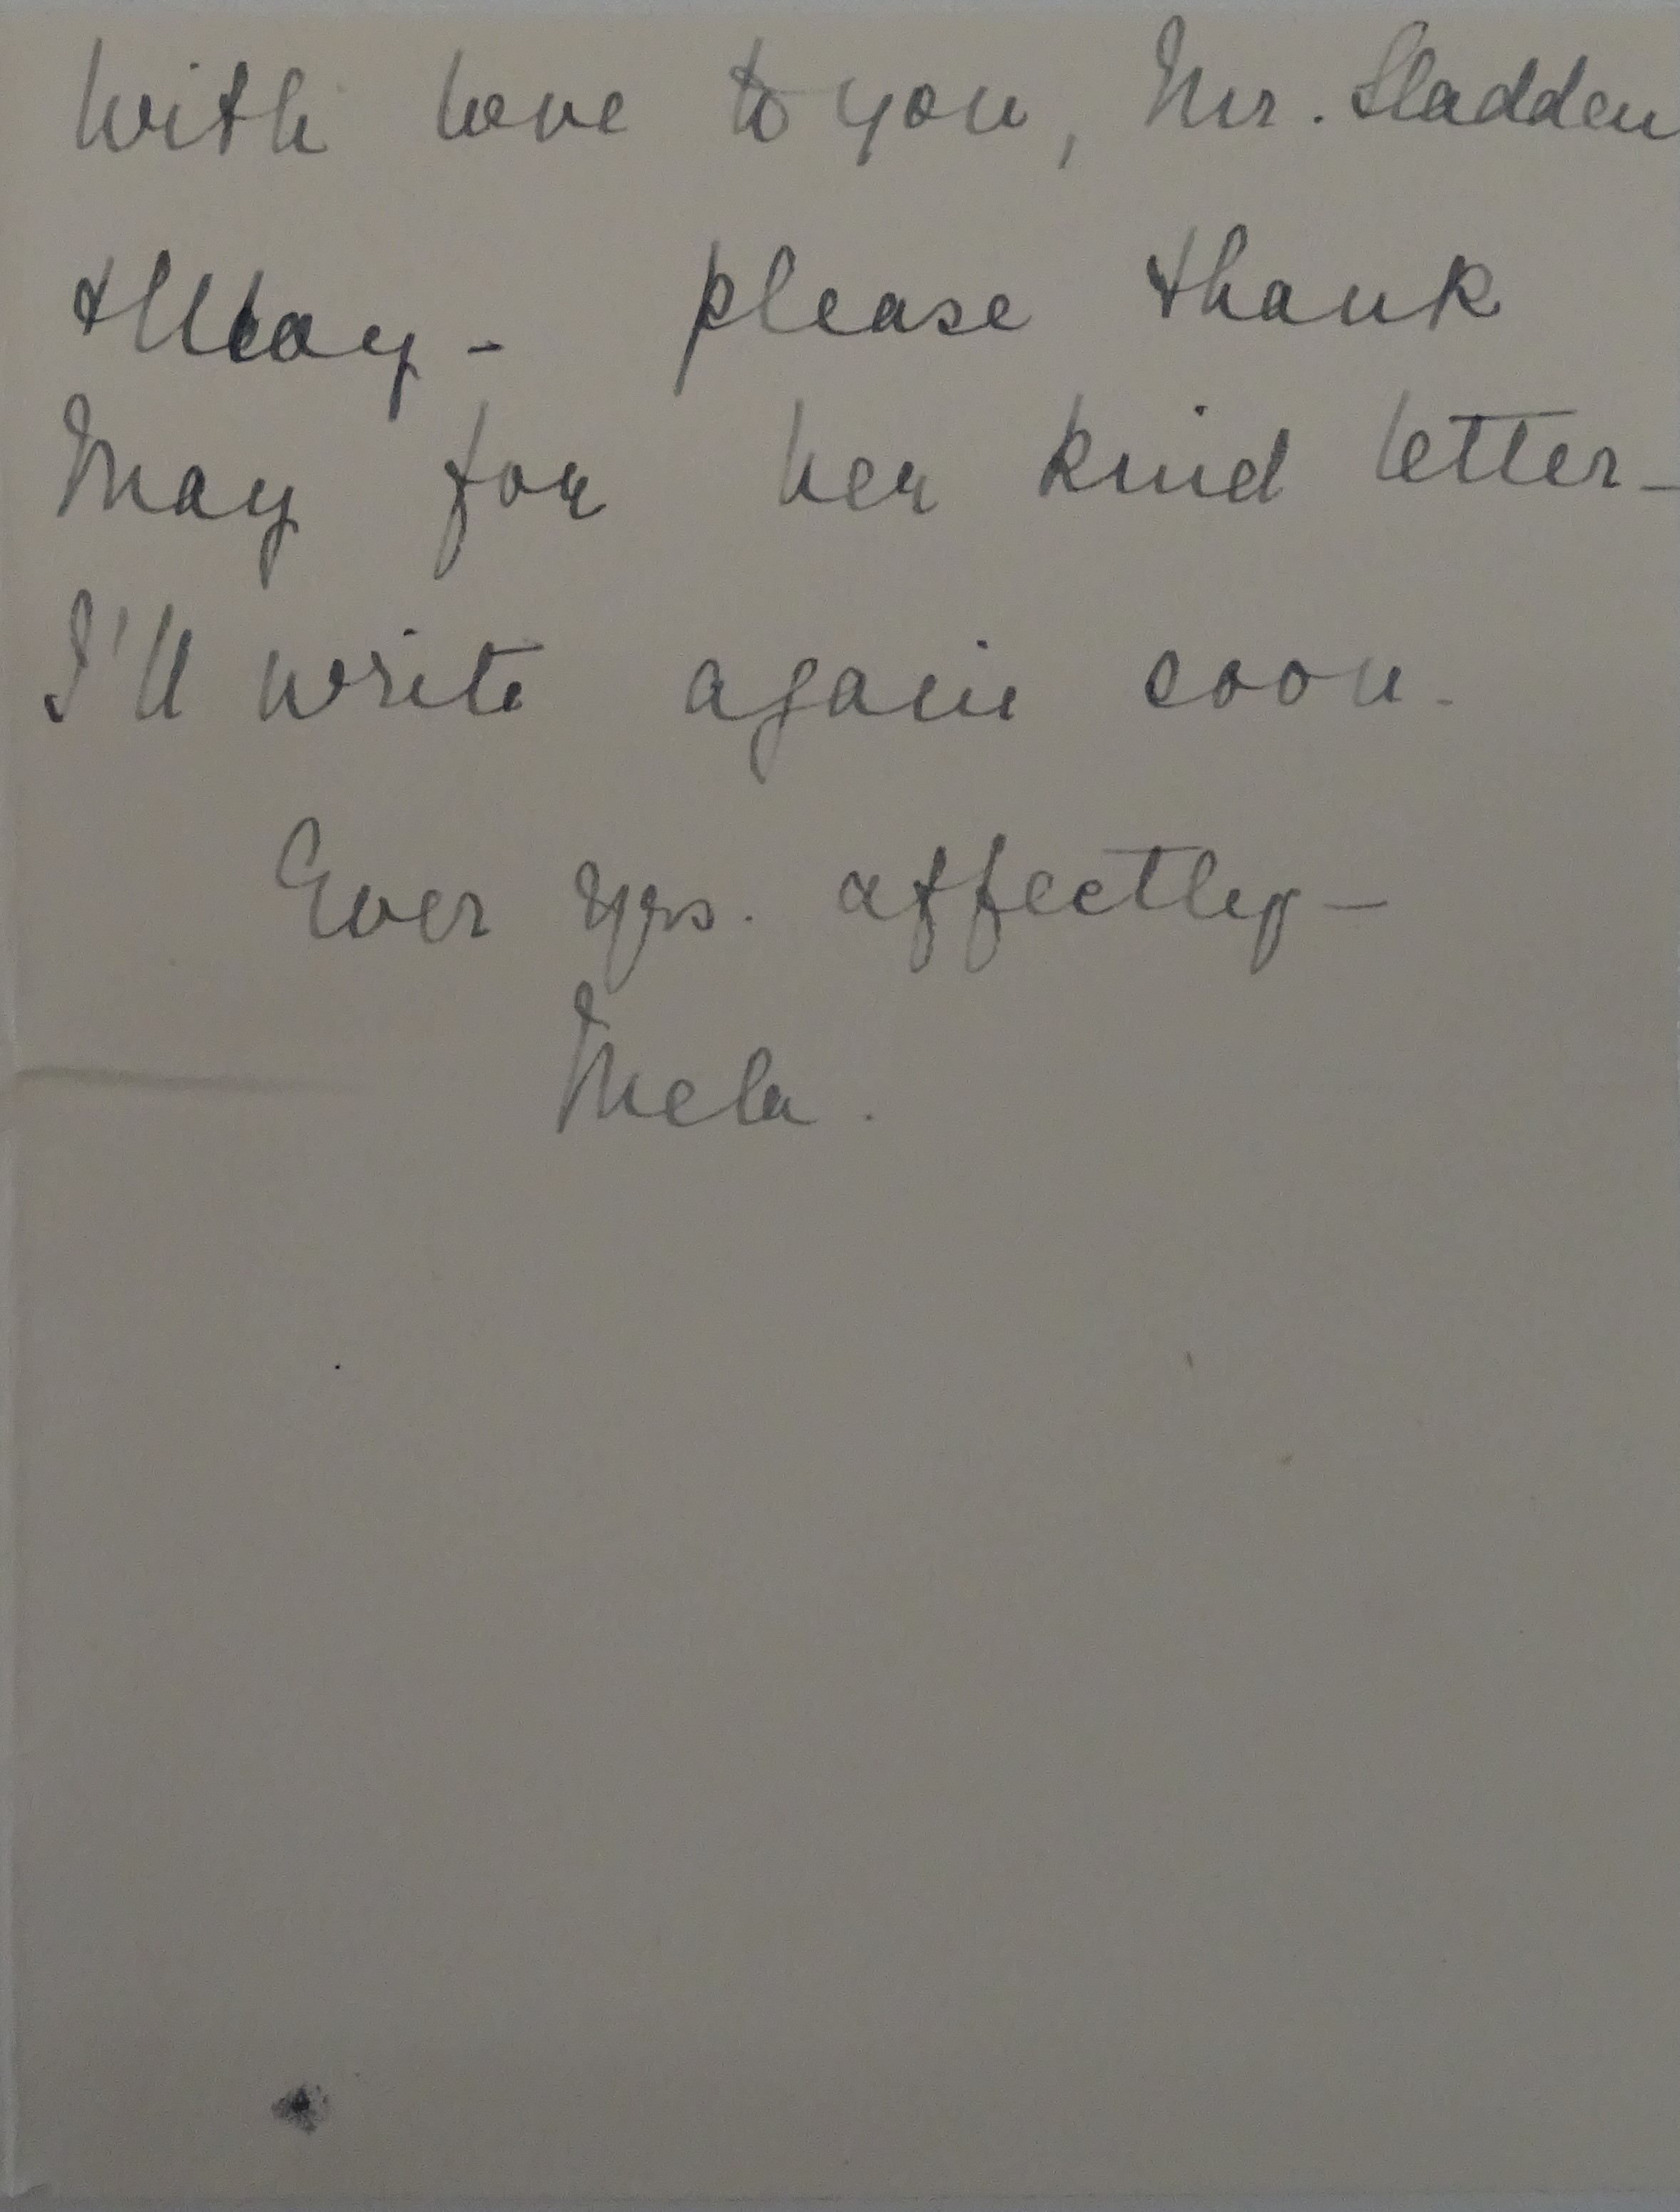 With love to you, Mr. Sladden
& May - please thank
May for her kind letter -
I'll write again soon.
Ever yrs. affectly -
Mela.